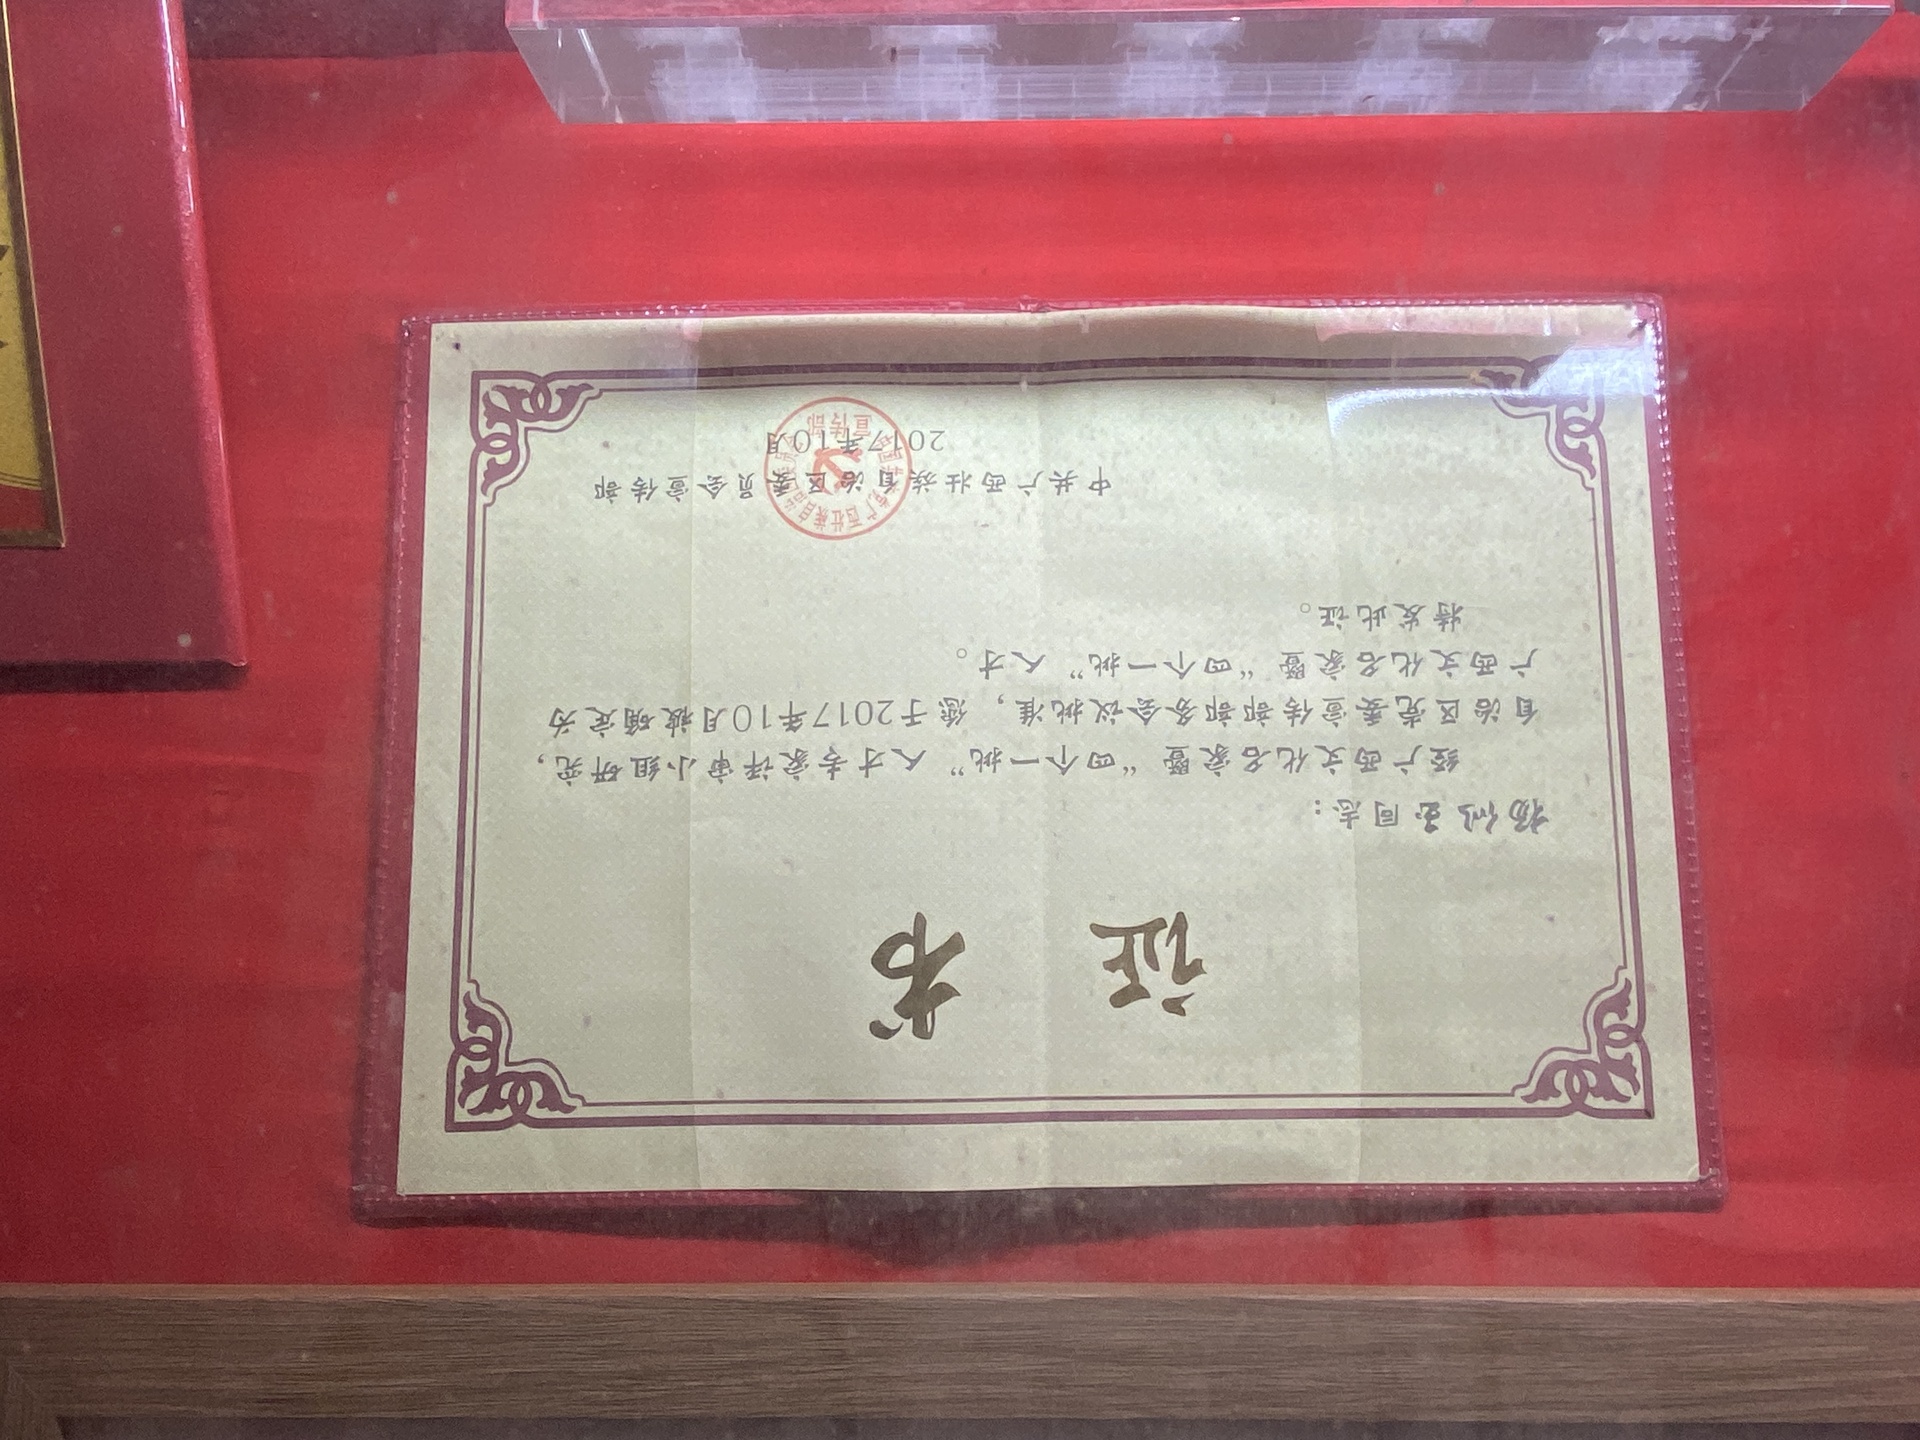 证书
杨仙玉同志：
经广西文化名家暨“四个一批”人才专家评审小组研究，
自治区党委宣传部部务会议批准，您于2017年10月被确定为
广西文化名家暨“四个一批”人才。
特发此证。
中共广西壮族自治区委员会宣传部
2017年10月
宣传部